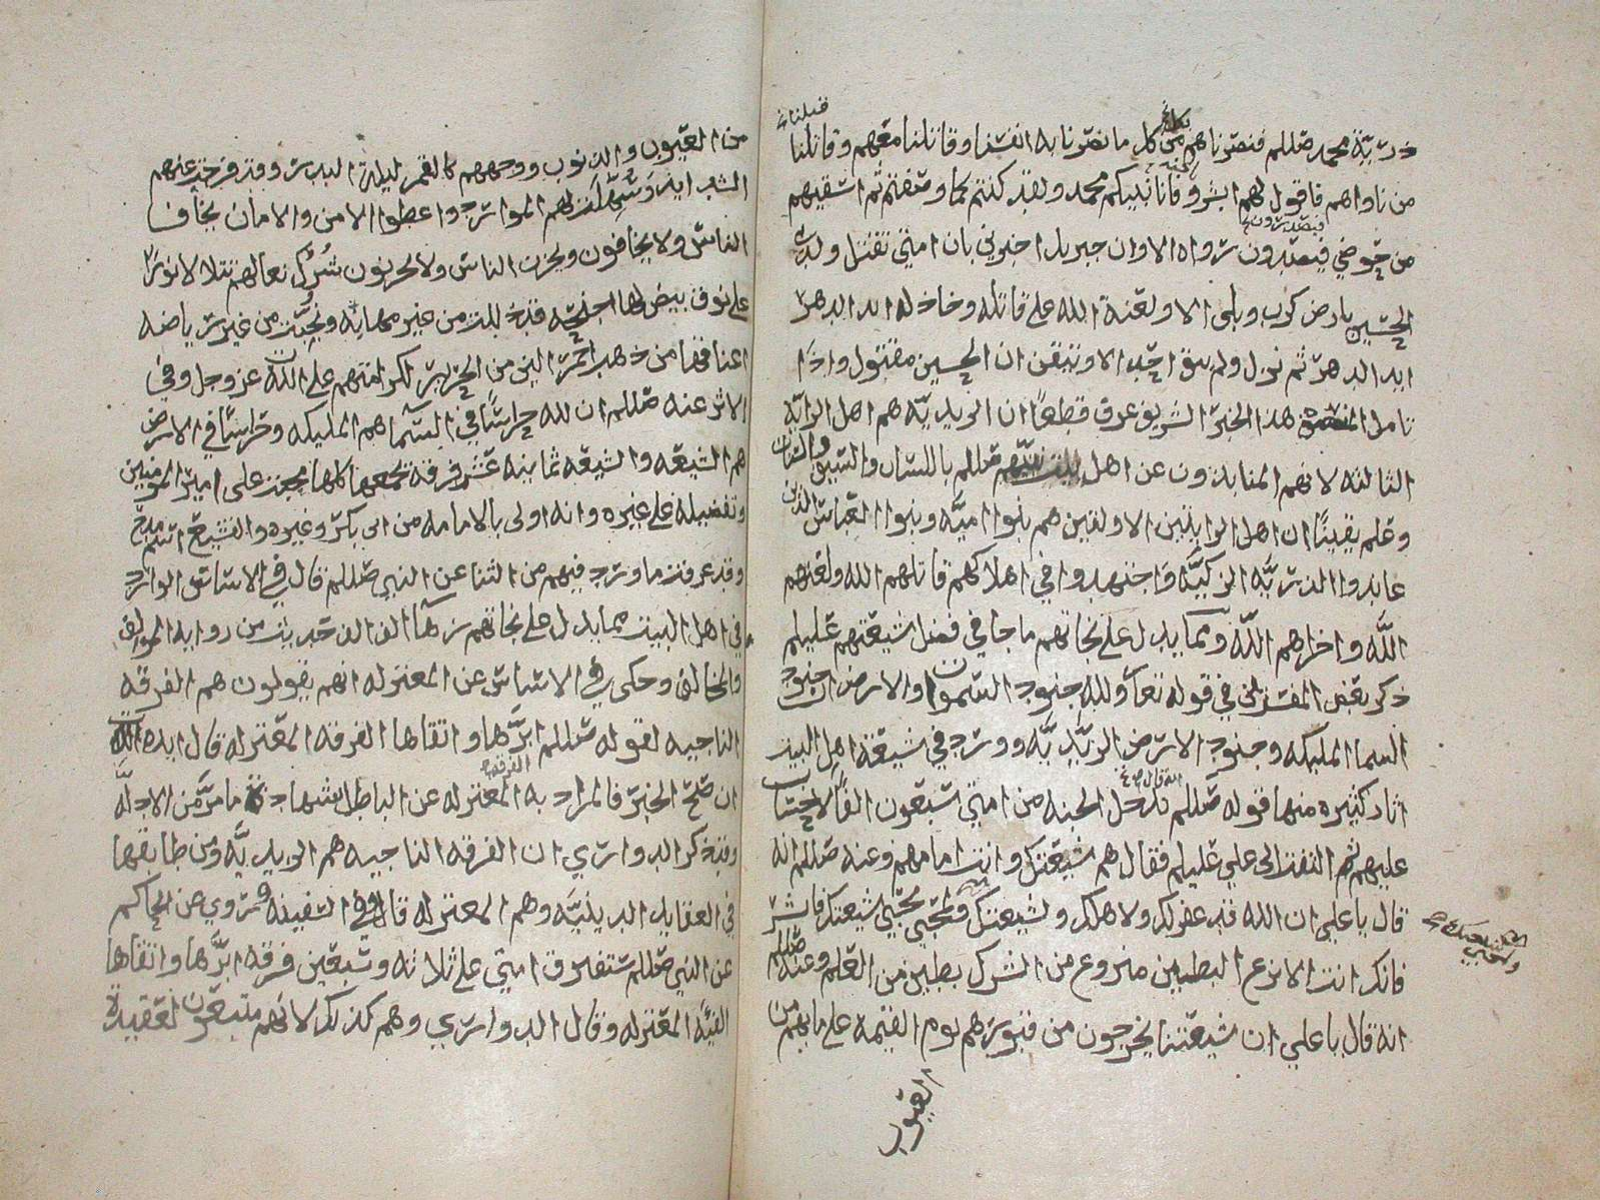 ذريّة محمد صللم فنصرناهم من كل ما نصرنا به انفسنا وقاتلنا معهم وقاتلنا
من ناواهم فاقول لهم ابشروا فانا نبيكم محمد ولقد كنتم كما وصفتم ثم اسقيهم
من حوضي فيصدرون رواه الا وان جبريل اخبرني بان امتي تقتل ولدي
الحسين بارض كرب وبلى الا ولعنة الله على قاتله وخاذله ابد الدهر
ابد الدهر ثم نزل ولم يبق احد الا وتيقن ان الحسين مقتول واذا
تامل هذا الخبر الشريف عرف قطعًا ان الزيديّه هم اهل الرايه
الثالثه لانهم المنابذون عن اهل بيت نبيّهم صللم باللسان والسيف والسنان
وعلم يقينًا ان اهل الرايتين الاولتين هم بنوا اميّه وبنوا العباس الذين
عاندوا الذريّه الزكيّه واجتهدوا في اهلاكهم قاتلهم الله ولعنهم
الله واخزاهم الله ومما يدل على نجاتهم ما جا في فضل شيعتهم عليلم
ذكر بعض المفسرين في قوله تعالى ولله جنود السموات والارض ان جنود
السما المليكه وجنود الارض الزيديّه وورد في شيعة اهل البيت
اثار كثيره منها قوله صللم تدخل الجنه من امتي سبعون الفًا لا حساب
عليهم ثم التفت الى علي عليلم فقال هم شيعتك وانت امامهم وعنه صللم انه
قال يا علي ان الله قد غفر لك ولاهلك ولشيعتك ولمحبي محبي شيعتك فابشر
فانك انت الانزع البطين منزوع من الشرك بطين من العلم وعنه صللم
انه قال يا علي ان شيعتنا يخرجون من قبورهم يوم القيمه على ما بهم من
العيوب
من العيوب والذنوب ووجههم كالقمر ليلة البدر وقد فرخت عنهم
الشدايد وسهلت لهم الموارد واعطوا الامن والامان يخاف
الناس ولا يخافون ويحزن الناس ولا يحزنون شرك نعالهم تتلالا نورًا
على نوق بيض لها اجنحه قد ذللت من غير مهانه ونجبت من غير رياضه
اعناقها من ذهب احمر الين من الحرير لكرامتهم على الله عز وجل وفي
الاثر عنه صللم ان لله حراسًا في السما هم المليكه وحراسًا في الارض
هم الشيعه والشيعه ثمانيه عشر فرقه كلها على امير المومنين
وتفضيله على غيره وانه اولى بالامامه من ابي بكر وغيره والتشيع اسم مدح
وقد عرفت ما ورد فيهم من الثنا عن النبي صللم قال في الاساس الوارد
في اهل البيت مما يدل على نجاتهم زها الف الف حديث من روايه الموالف
والمخالف وحكى في الاساس عن المعتزله انهم يقولون هم الفرقه
الناجيه لقوله صللم ابرّها واتقاها الفرقه المعتزله قال ايده الله
ان صح الخبر فالمراد به الفرقه المعتزله عن الباطل بشهادة ما مرّ من الادلّه
وقد ذكر الدواري ان الفرقه الناجيه هم الزيديّه ومن طابقها
في العقايد الدينيّه وهم المعتزله قال وفي السفينه وروي عن الحاكم
عن النبي صللم ستفترق امتي على ثلاثه وسبعين فرقه ابرّها واتقاها
الفيّه المعتزله وقال الدواري وهم كذلك لانهم متبعون لعقيدة